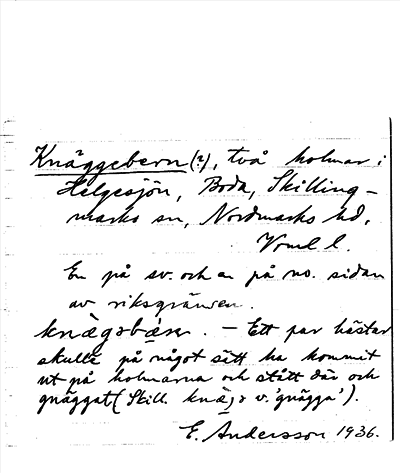 Knäggebern(?), två holmar i
Helgesjön, Boda, Skilling-
marks sn, Nordmarks hd,
Vrml l.
En på sv. och en på no. sidan
av riksgränsen.
knägəbæ̀ɳ. – Ett par hästar
skulle på något sätt ha kommit
ut på holmarna och stått där och
gnäggat (Skill. knäjə v. 'gnägga').
E. Andersson 1936.